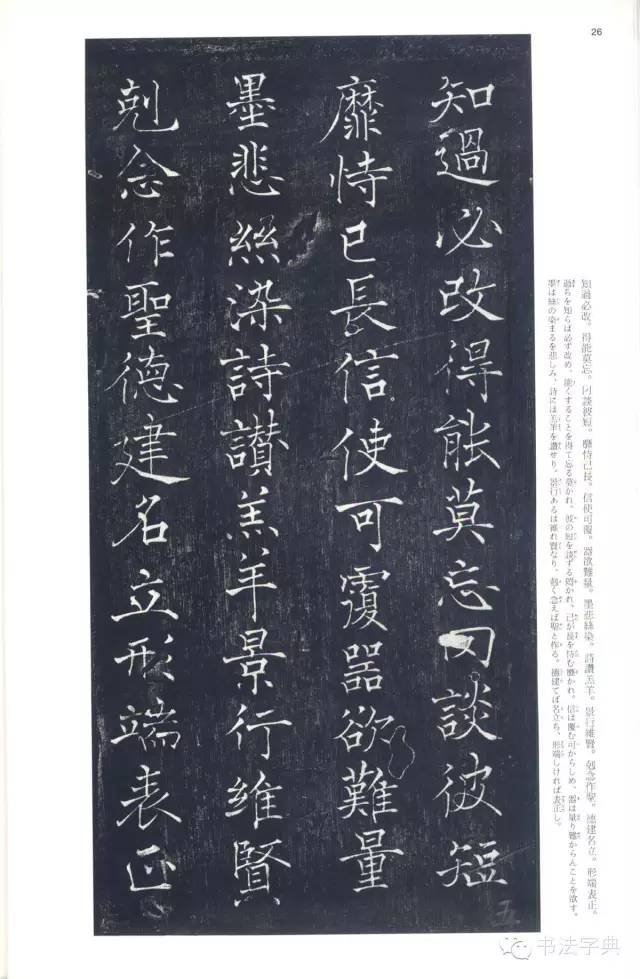 26
知過必改得能莫忘罔談彼短
靡恃己長信使可覆器欲難量
墨悲絲染詩讃羔羊景行維賢
剋念作聖德建名立形端表正
五
知過必改。得能莫忘。罔談彼短。靡恃己長。信使可覆。器欲難量。墨悲絲染。詩讃羔羊。景行維賢。剋念作聖。德建名立。形端表正。
過ちを知らば必ず改め、能くすることを得て忘る莫かれ。彼の短を談ずる罔かれ、己が長を恃む靡かれ。信は覆む可からしめ、器は量り難からんことを欲す。
墨は絲の染まるを悲しみ、詩には羔羊を讃せり。景行あるは維れ賢なり、剋く念えば聖と作る。德建てば名立ち、形端しければ表正し。
书法字典